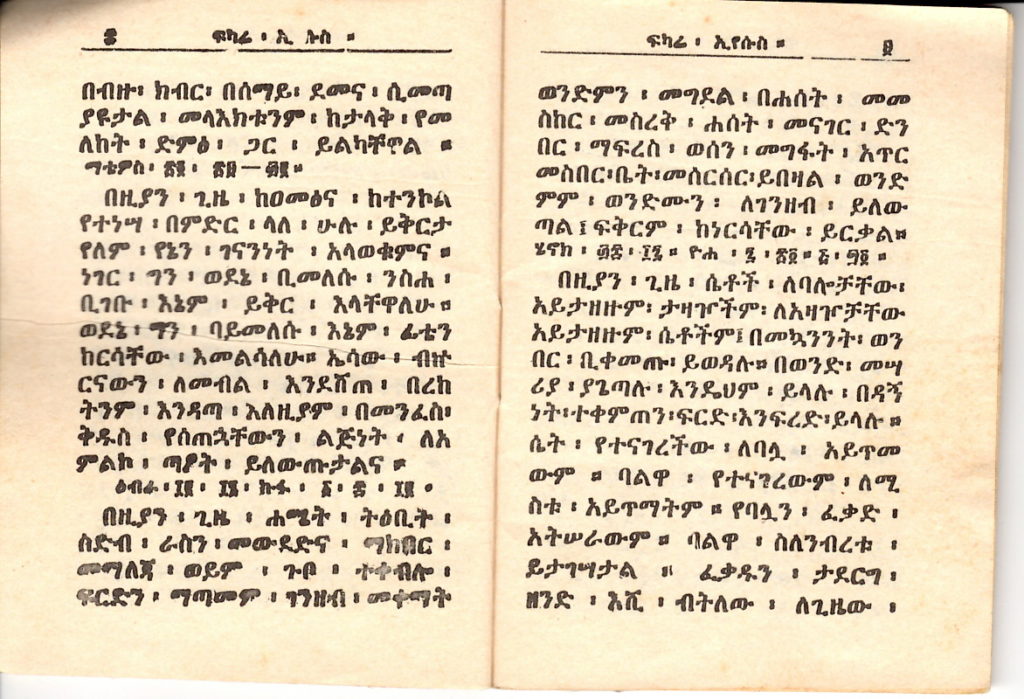 ፰ ፍካሬ ፡ ኢ ሱስ ።
በብዙ፡ ክብር፡ በሰማይ፡ ደመና ፡ ሲመጣ
ያዩታል ፡ መላእክቱንም ፡ ከታላቅ ፡ የመ
ለከት ፡ ድምፅ ፡ ጋር ፡ ይልካቸኖል ።
ማቴዎስ፡ ፳፬ ፡ ፳፱ — ፴፩ ።
በዚያን ፡ ጊዜ ፡ ከዐመፅና ፡ ከተንኮል
የተነሣ ፡ በምድር ፡ ላለ ፡ ሁሉ ፡ ይቅርታ
የለም ፡ የኔን ፡ ገናንነት ፡ አላወቁምና ።
ነገር ፡ ግን ፡ ወደኔ ፡ ቢመለሱ ፡ ንስሐ ፡
ቢገቡ ፡ እኔም ፡ ይቅር ፡ እላቸዋለሁ ።
ወደኔ ፡ ግን ፡ ባይመለሱ ፡ እኔም ፡ ፊቴን
ከርሳቸው ፡ እመልሳለሁ ። ኤሳው ፡ ብኵ
ርናውን ፡ ለመብል ፡ እንደሸጠ ፡ በረከ
ትንም ፡ እንዳጣ ፡ እለዚያም ፡ በመንፈስ፡
ቅዱስ ፡ የሰጠኋቸውን ፡ ልጅነት ፡ ለአ
ምልኮ ፡ ጣዖት ፡ ይለውጡታልና ።
ዕብራ ፡ ፲፪ ፡ ፲፮ ፡ ኩፋ ፡
በዚያን ፡ ጊዜ ፡ ሐሜት ፡ ትዕቢት ፡
ስድብ ፡ ራስን ፡ መውደድና ፡ ማክበር ፡
መማለጃ ፡ ወይም ፡ ጉቦ ፡ ተቀብሎ ፡
ፍርድን ፡ ማጣመም ፡ ገንዘብ ፡ መቀማት
ፍካሬ ፡ ኢየሱስ ። ፱
ወንድምን ፡ መግደል ፡ በሐሰት ፡ መመ
ስከር ፡ መስረቅ ፡ ሐሰት ፡ መናገር ፡ ድን
በር ፡ ማፍረስ ፡ ወሰን ፡ መግፋት ፡ አጥር
መስበር፡ቤት፡መሰርሰር፡ይበዛል ፡ ወንድ
ምም ፡ ወንድሙን ፡ ለገንዘብ ፡ ይለው
ጣል ፤ ፍቅርም ፡ ከነርሳቸው ፡ ይርቃል።
ሄኖክ ፡ ፴፰ ፡ ፲፯ ። ዮሐ ፡
በዚያን ፡ ጊዜ ፡ ሴቶች ፡ ለባሎቻቸው፡
አይታዘዙም፡ ታዛዦችም፡ ለአዛዦቻቸው
አይታዘዙም፡ ሴቶችም፤ በመኳንንት፡ ወን
በር ፡ ቢቀመጡ፡ ይወዳሉ። በወንድ፡ መሣ
ሪያ ፡ ያጌጣሉ ፡ እንዴህም ፡ ይላሉ ፡ በዳኝ
ነት፡ተቀምጠን፡ፍርድ፡እንፍረድ፡ይላሉ ።
ሴት ፡ የተናገረችው ፡ ለባሏ ፡ አይጥመ
ውም ። ባልዋ ፡ የተናገረውም ፡ ለሚ
ስቱ ፡ አይጥማትም ። የባሏን ፡ ፈቃድ ፡
አትሠራውም ። ባልዋ ፡ ስለንብረቱ ፡
ይታገሣታል ። ፈቃዱን ፡ ታደርግ ፡
ዘንድ ፡ እሺ ፡ ብትለው ፡ ለጊዜው ፡